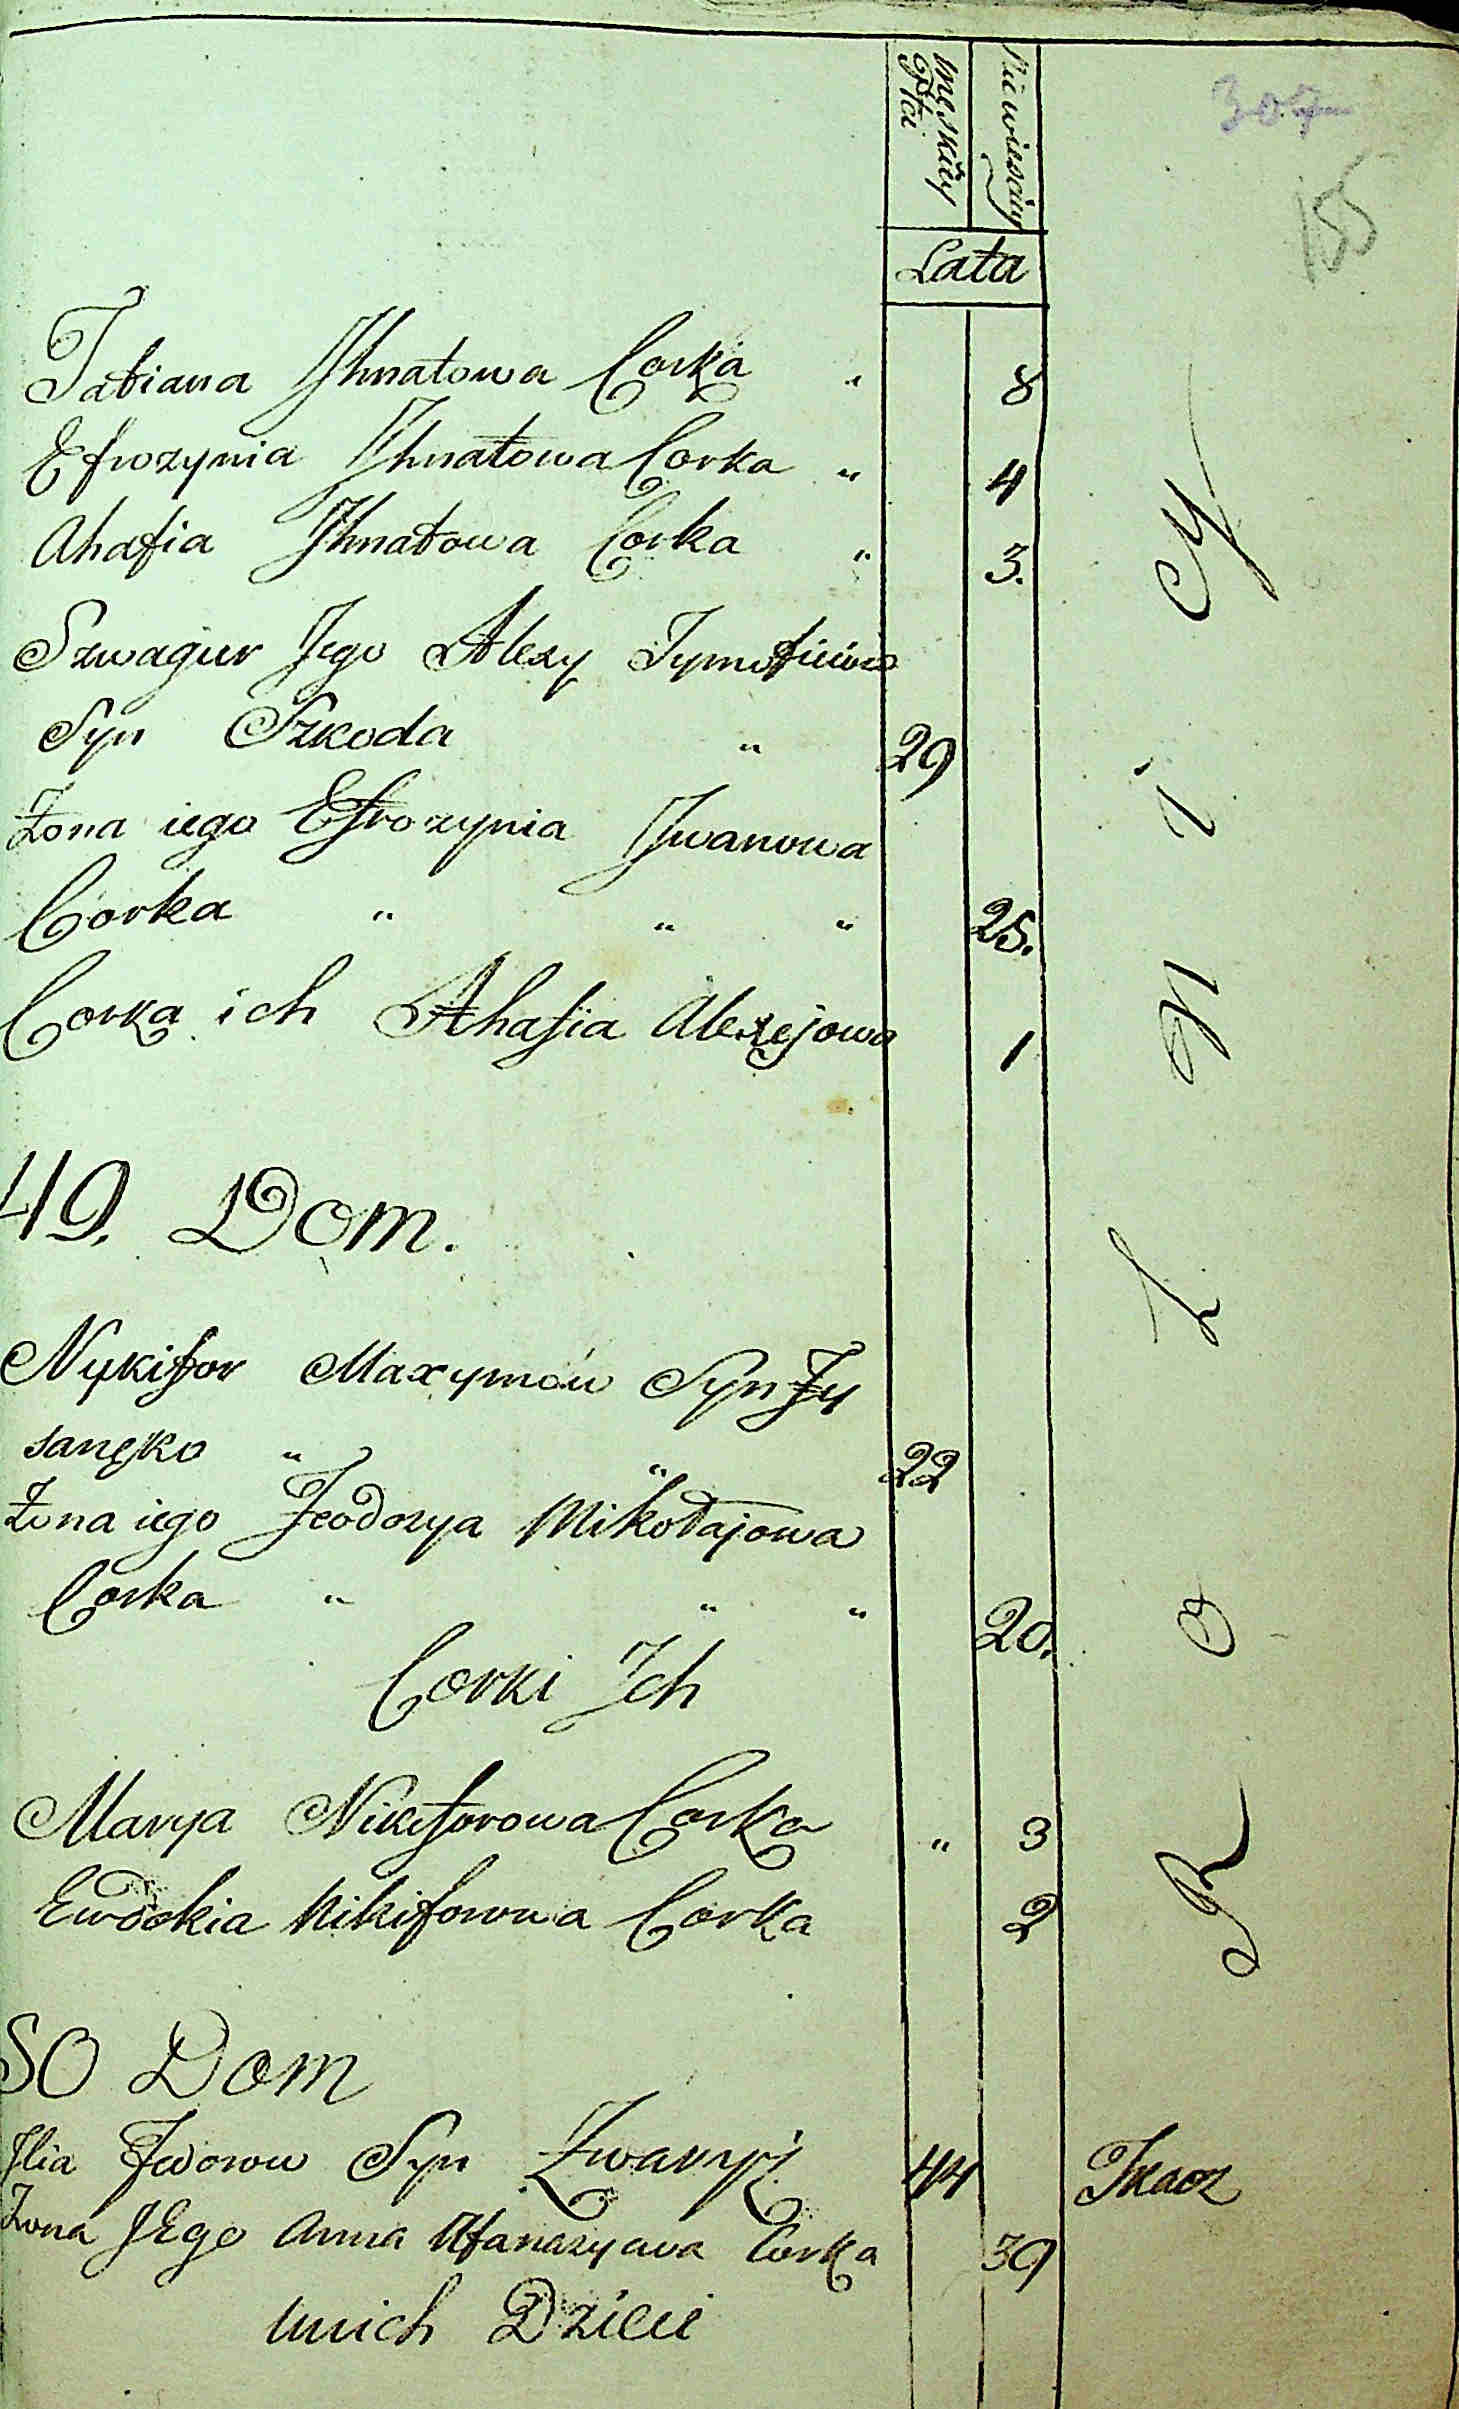 męskiey
płci
Niewiesciey
307
155
Lata
Tatiana Jhnatowa Corka " 8
Efrozynia Jhnatowa Corka " 4
Ahafia Jhnatowa Corka " 3.
Szwagier Jego Alexy
Syn Szkoda " 29
Żona iego Efrozynia Jwanowa
Corka " " " 25.
Corka ich Ahafia Alexejowa 1
49. Dom.
Nykifor Maxymów Syn Ży
sanęko " " 22
Żona iego Feodozya Mikołajowa
Corka " " " 20.
Corki Jch
Marya Nikiforowa Corka " 3
Ewdokia Nikiforowa Corka 2
50 Dom
Jlia Syn Zwarycz 44 Tkacz
Żona JEgo Anna Afanazyowa Corka 39
unich Dzieci
R o l n i c y